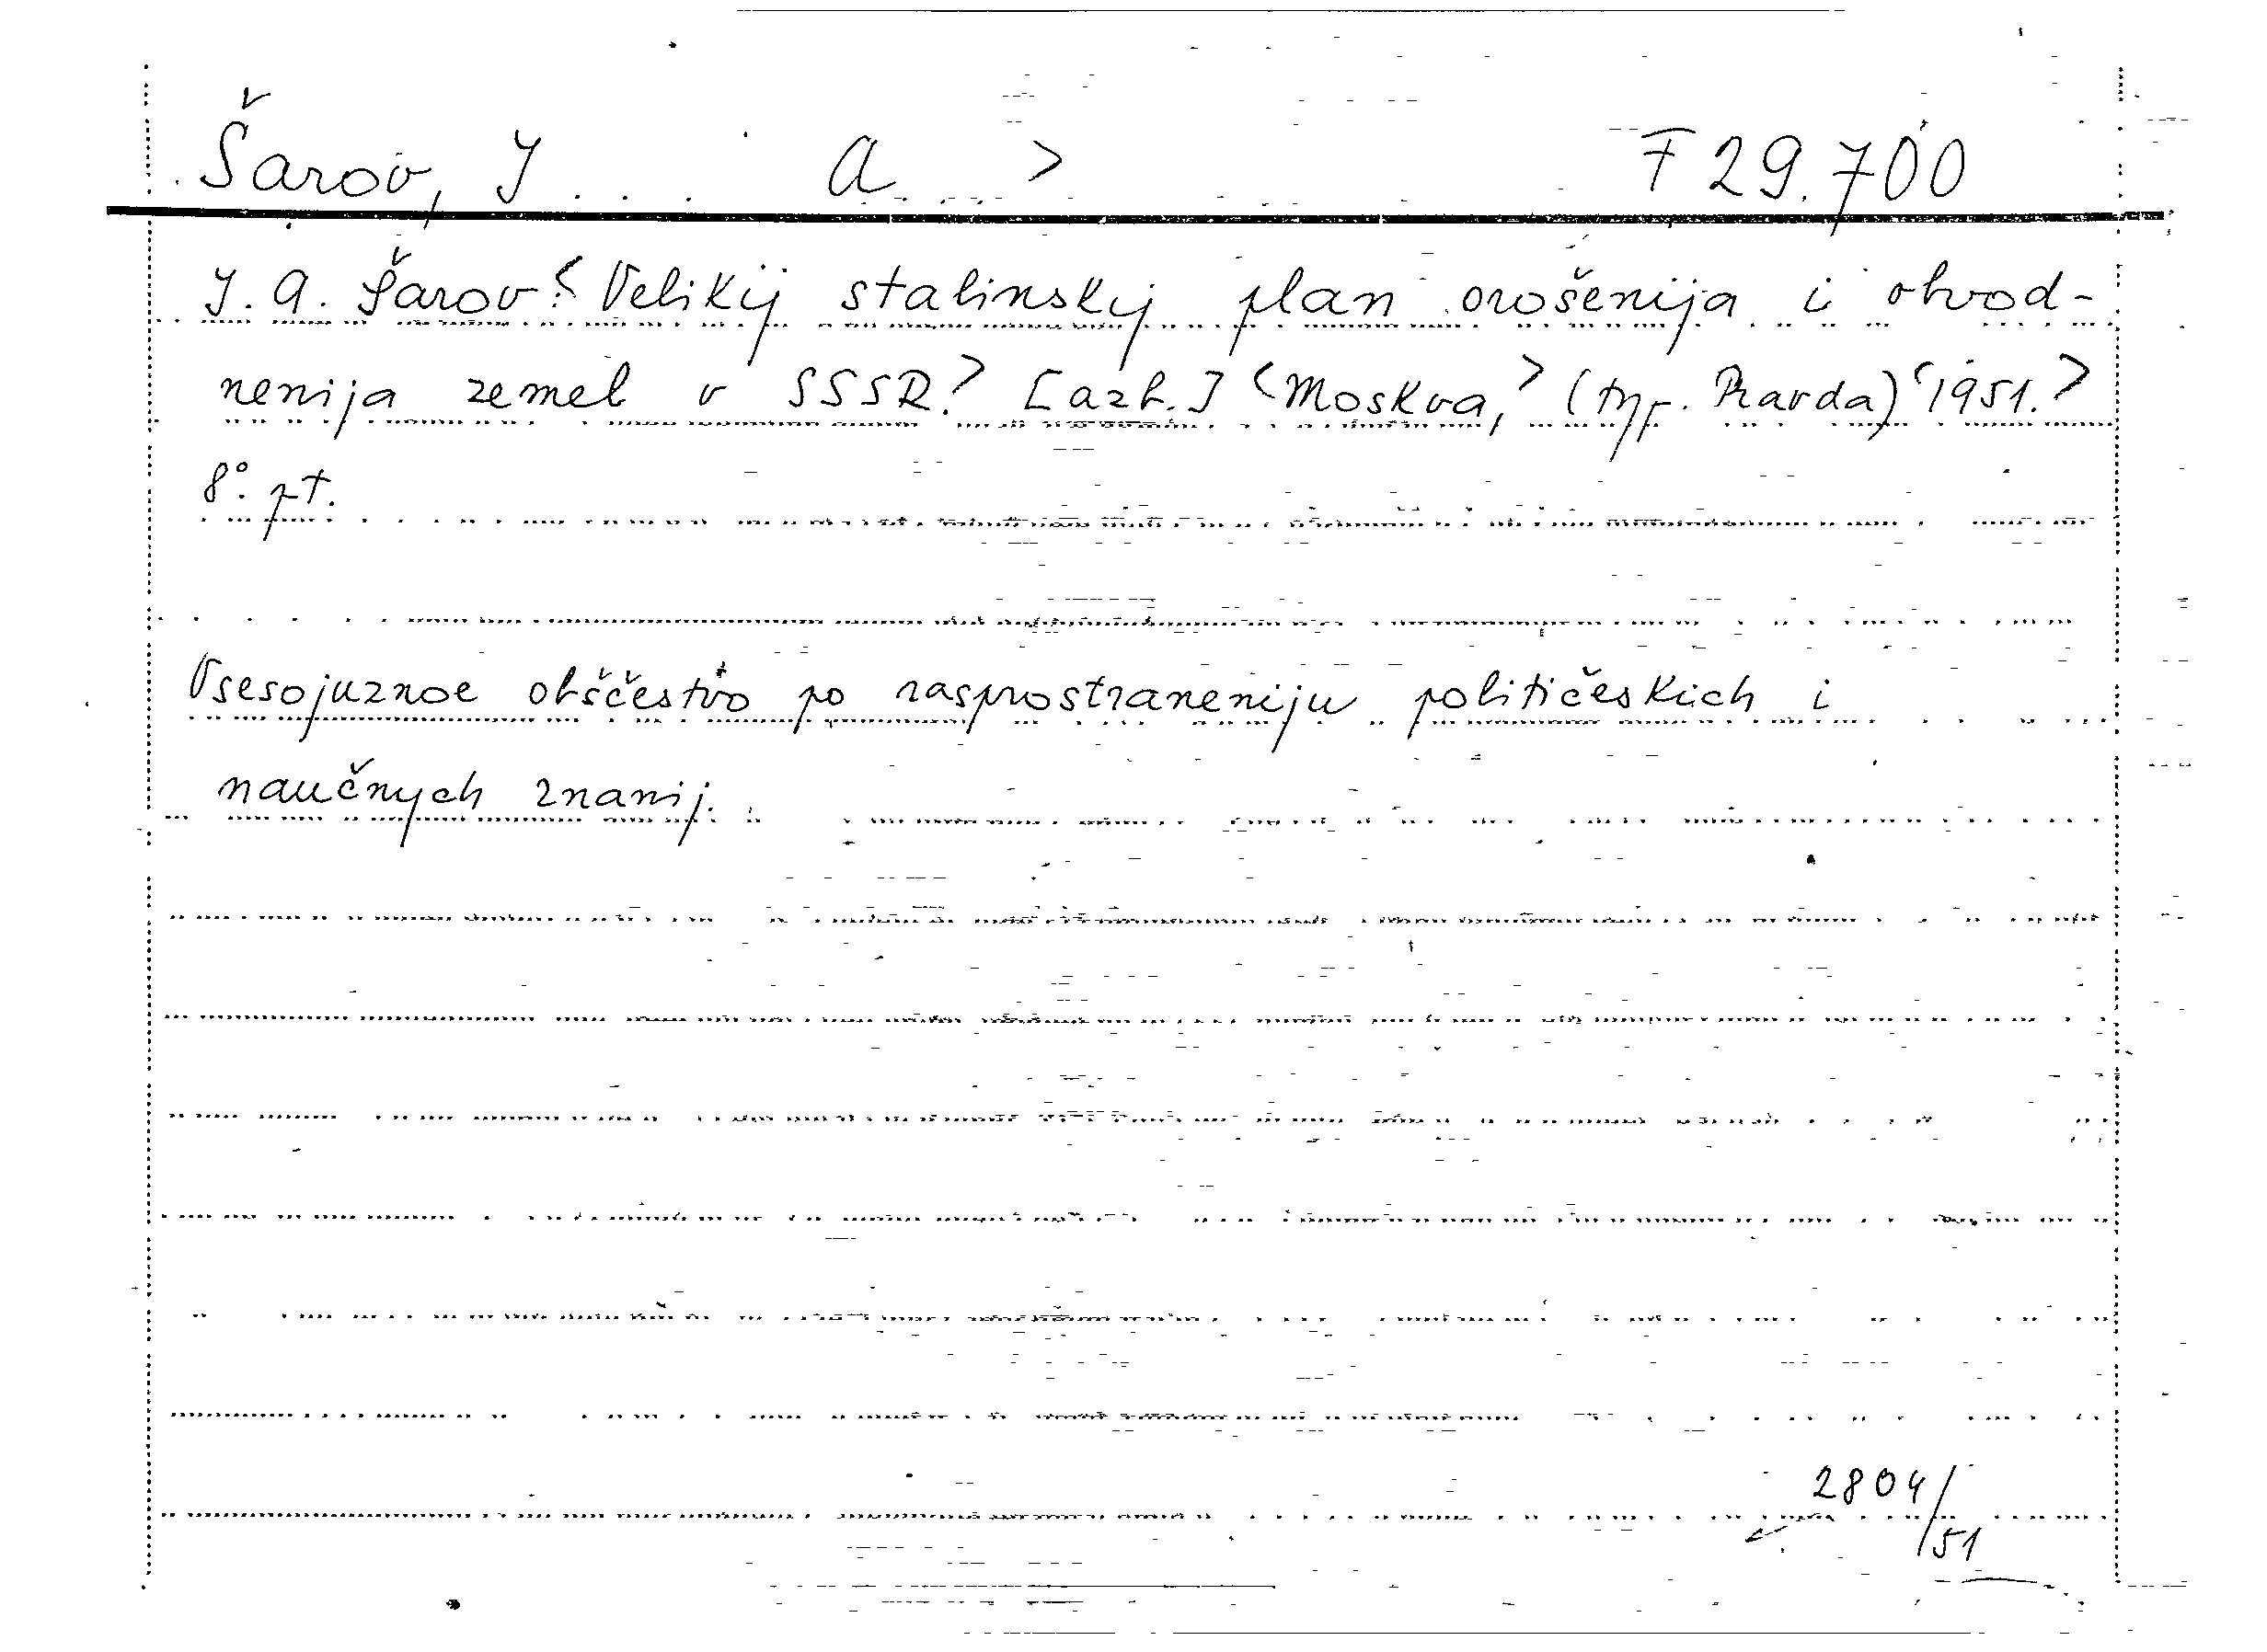 Šarov, J... A... > F 29.700
J. A. Šarov: <Velikij stalinskij plan orošenija i obvod-
nenija zemel v SSSR.> [azb.] <Moskva,> (typ. Pravda) <1951.>
8°. pt.
Vsesojuznoe obščestvo po rasprostraneniju političeskich i
naučnych znanij.
2804/
51